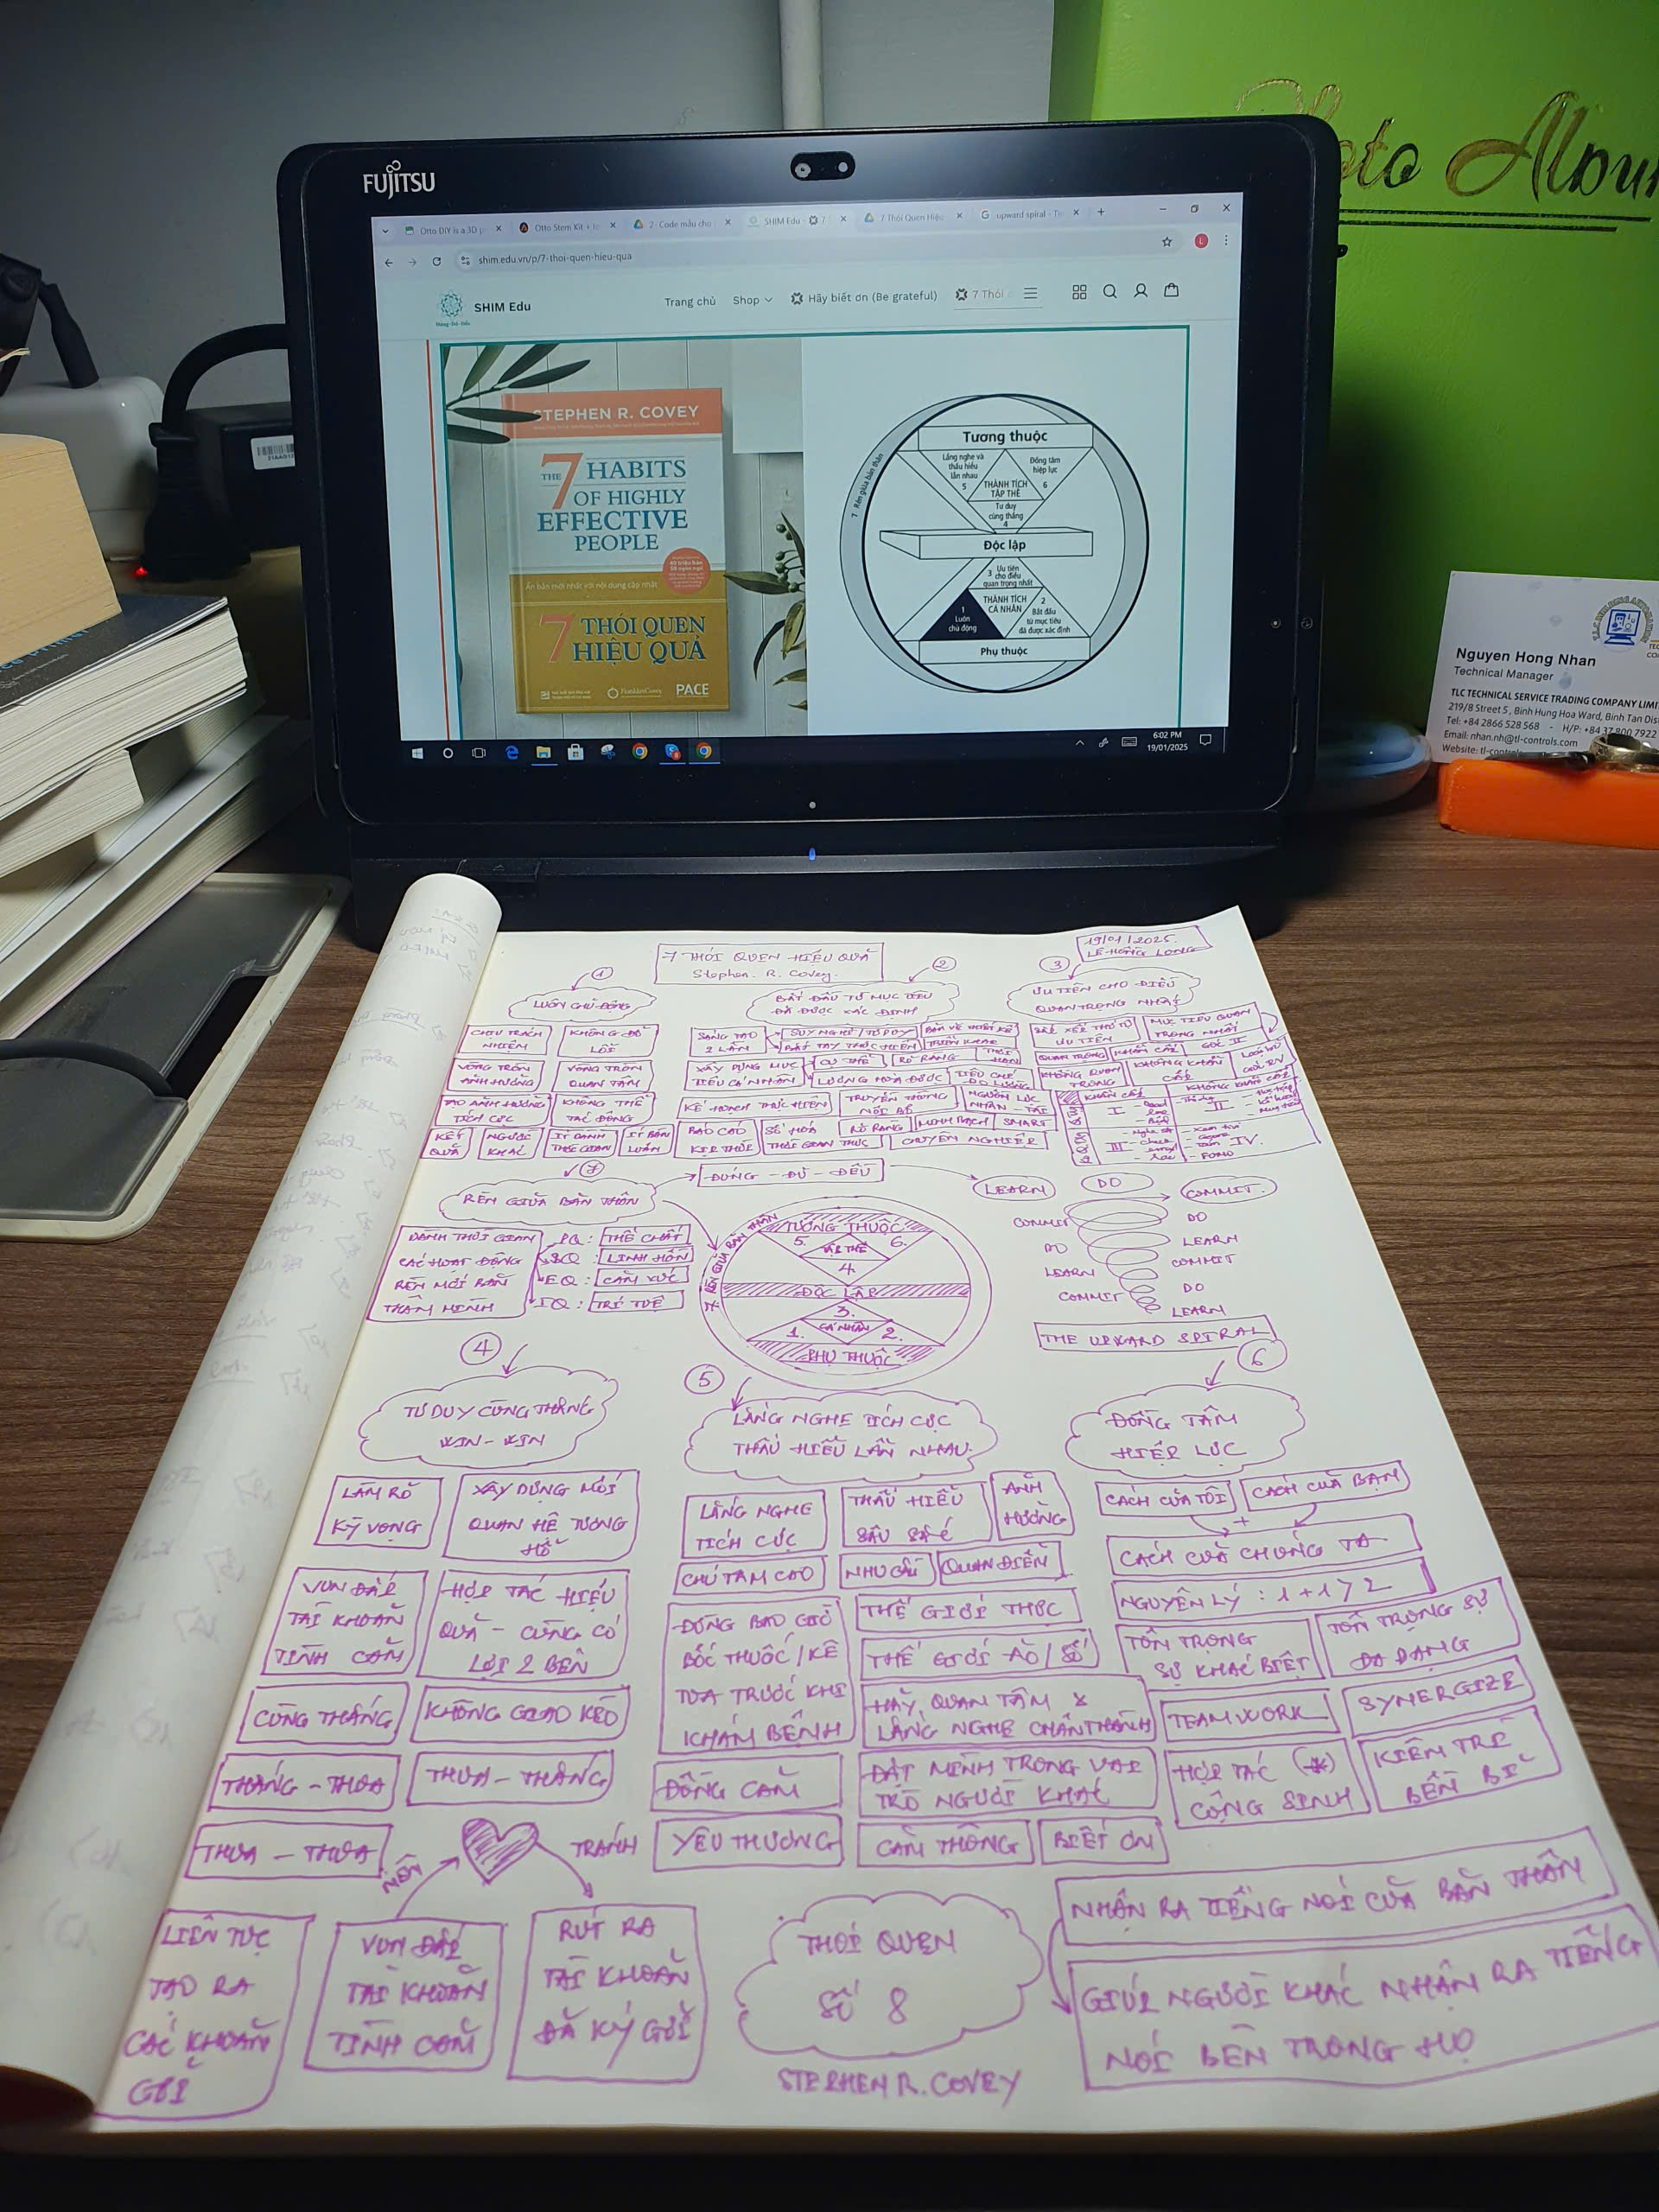 Photo Album
FUJITSU
Otto DIY is a 3D p
Otto Stem Kit + Is
2- Code mẫu cho
SHIM Edu -
7 Thói Quen Hiệu
upward spiral - Tì
shim.edu.vn/p/7-thoi-quen-hieu-qua
SHIM Edu
Trang chủ
Shop
Hãy biết ơn (Be grateful)
7 Thói
STEPHEN R. COVEY
THE 7 HABITS
OF HIGHLY
EFFECTIVE
PEOPLE
Ấn bản mới nhất với nội dung cập nhật
7 THÓI QUEN
HIỆU QUẢ
FranklinCovey
PACE
7 Rèn giũa bản thân
Tương thuộc
Lắng nghe và
thấu hiểu
lẫn nhau
5
Đồng tâm
hiệp lực
6
THÀNH TÍCH
TẬP THỂ
Tư duy
cùng thắng
4
Độc lập
3 Ưu tiên
cho điều
quan trọng nhất
THÀNH TÍCH
CÁ NHÂN
1
Luôn
chủ động
2
Bắt đầu
từ mục tiêu
đã được xác định
Phụ thuộc
6:02 PM
19/01/2025
Nguyen Hong Nhan
Technical Manager
TLC TECHNICAL SERVICE TRADING COMPANY LIMI
219/8 Street 5, Binh Hung Hoa Ward, Binh Tan Dis
Tel: +84 2866 528 568 - H/P: +84 37 800 7922
Email: nhan.nh@tl-controls.com
Website: tl-controls
7 THÓI QUEN HIỆU QUẢ
Stephen. R. Covey.
19/01/2025.
LÊ HỒNG LONG
1
LUÔN CHỦ ĐỘNG
CHỊU TRÁCH
NHIỆM
KHÔNG ĐỔ
LỖI
VÒNG TRÒN
ẢNH HƯỞNG
VÒNG TRÒN
QUAN TÂM
TẠO ẢNH HƯỞNG
TÍCH CỰC
KHÔNG THỂ
TÁC ĐỘNG
KẾT
QUẢ
NGƯỜI
KHÁC
ÍT DÀNH
THỜI GIAN
ÍT BÀN
LUẬN
2
BẮT ĐẦU TỪ MỤC TIÊU
ĐÃ ĐƯỢC XÁC ĐỊNH
SÁNG TẠO
2 LẦN
SUY NGHĨ / TƯ DUY
BẢN VẼ THIẾT KẾ
BẮT TAY THỰC HIỆN
TRIỂN KHAI
XÂY DỰNG MỤC
TIÊU CÁ NHÂN
CỤ THỂ
RÕ RÀNG
THỜI
HẠN
LƯỢNG HOÁ ĐƯỢC
TIÊU CHÍ
ĐO LƯỜNG
KẾ HOẠCH THỰC HIỆN
TRUYỀN THÔNG
NỘI BỘ
NGUỒN LỰC
NHÂN - TÀI
BÁO CÁO
KỊP THỜI
SỐ HOÁ
THỜI GIAN THỰC
RÕ RÀNG
MINH BẠCH
SMART
CHUYÊN NGHIỆP
3
ƯU TIÊN CHO ĐIỀU
QUAN TRỌNG NHẤT
SẮP XẾP THỨ TỰ
ƯU TIÊN
MỤC TIÊU QUAN
TRỌNG NHẤT
QUAN TRỌNG
KHẨN CẤP
GÓC II
KHÔNG QUAN
TRỌNG
KHÔNG KHẨN
CẤP
KHẨN CẤP
KHÔNG KHẨN CẤP
I
II
III
IV.
7
RÈN GIŨA BẢN THÂN
ĐÚNG - ĐỦ - ĐỀU
DÀNH THỜI GIAN
CÁC HOẠT ĐỘNG
RÈN MỚI BẢN
THÂN MÌNH
PQ: THỂ CHẤT
SQ: LINH HỒN
EQ: CẢM XÚC
IQ: TRÍ TUỆ
7. RÈN GIŨA BẢN THÂN
TƯƠNG THUỘC
5.
TẬP THỂ
6.
4.
ĐỘC LẬP
3.
1.
CÁ NHÂN
2.
PHỤ THUỘC
LEARN
DO
COMMIT.
COMMIT
DO
DO
LEARN
LEARN
COMMIT
COMMIT
DO
LEARN
THE UPWARD SPIRAL
4
TƯ DUY CÙNG THẮNG
WIN-WIN
LÀM RÕ
KỲ VỌNG
XÂY DỰNG MỐI
QUAN HỆ TƯƠNG
HỖ
VUN ĐẮP
TÀI KHOẢN
TÌNH CẢM
HỢP TÁC HIỆU
QUẢ - CÙNG CÓ
LỢI 2 BÊN
CÙNG THẮNG
KHÔNG GIAO KÈO
THẮNG - THUA
THUA - THẮNG
THUA - THUA
NÊN
TRÁNH
LIÊN TỤC
TẠO RA
CÁC KHOẢN
GỬI
VUN ĐẮP
TÀI KHOẢN
TÌNH CẢM
RÚT RA
TÀI KHOẢN
ĐÃ KÝ GỬI
5
LẮNG NGHE TÍCH CỰC
THẤU HIỂU LẪN NHAU.
LẮNG NGHE
TÍCH CỰC
THẤU HIỂU
SÂU SẮC
ẢNH
HƯỞNG
CHÚ TÂM CAO
NHU CẦU
QUAN ĐIỂM
ĐỪNG BAO GIỜ
BỐC THUỐC / KÊ
TOA TRƯỚC KHI
KHÁM BỆNH
THẾ GIỚI THỰC
THẾ GIỚI ẢO / SỐ
HÃY QUAN TÂM &
LẮNG NGHE CHÂN THÀNH
ĐỒNG CẢM
ĐẶT MÌNH TRONG VAI
TRÒ NGƯỜI KHÁC
YÊU THƯƠNG
CẢM THÔNG
BIẾT ƠN
6
ĐỒNG TÂM
HIỆP LỰC
CÁCH CỦA TÔI
CÁCH CỦA BẠN
+
CÁCH CỦA CHÚNG TA
NGUYÊN LÝ: 1+1>2
TÔN TRỌNG
SỰ KHÁC BIỆT
TÔN TRỌNG SỰ
ĐA DẠNG
TEAMWORK
SYNERGIZE
HỢP TÁC
CỘNG SINH
KIÊN TRÌ
BỀN BỈ
THÓI QUEN
SỐ 8
STEPHEN R. COVEY
NHẬN RA TIẾNG NÓI CỦA BẢN THÂN
GIÚP NGƯỜI KHÁC NHẬN RA TIẾNG
NÓI BÊN TRONG HỌ